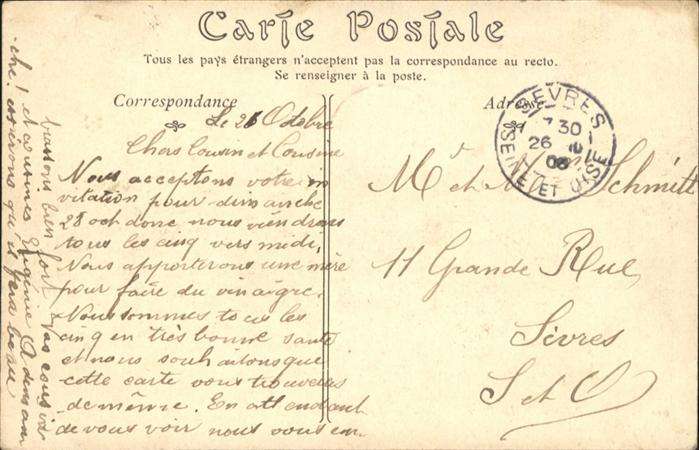 Carte Postale
Tous les pays étrangers n'acceptent pas la correspondance au recto.
Se renseigner à la poste.
Correspondance
Adresse
Le 26 Octobre
Chers Cousin et Cousine
Nous acceptons votre in
vitation pour dimanche
28 oct donc nous viendrons
tous les cinq vers midi,
Nous apporterons une mère
pour faire du vinaigre.
Nous sommes tous les
cinq en très bonne santé
et nous souhaitons que
cette carte vous trouvera
de même. En attendant
de vous voir nous vous em-
brassons bien fort Vos cousin
et cousines Eugénie
che! espérons qu'il fera beau
SEVRES
7 30
26
SEINE ET OISE
Mr et Mme Schmitt
11 Grande Rue
Sèvres
S et O